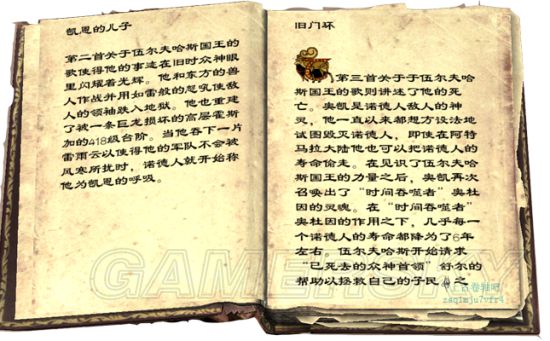 凯恩的儿子
第二首关于伍尔夫哈斯国王的
歌使得他的事迹在旧时众神眼
里闪耀着光辉。他和东方的兽
人作战并用如雷般的怒吼使敌
人的领袖跌入地狱。他也重建
了被一条巨龙损坏的高层霍斯
加的418级台阶。当他吞下一片
雷雨云以使得他的军队不会被
风寒所扰时，诺德人就开始称
他为凯恩的呼吸。
旧门环
第三首关于于伍尔夫哈
斯国王的歌则讲述了他的死
亡。奥凯是诺德人敌人的神
灵，他一直以来都想方设法地
试图毁灭诺德人，即使在阿特
马拉大陆他也可以把诺德人的
寿命偷走。在见识了伍尔夫哈
斯国王的力量之后，奥凯再次
召唤出了“时间吞噬者”奥杜
因的灵魂。在“时间吞噬者”
奥杜因的作用之下，几乎每一
个诺德人的寿命都降为了6年
左右。伍尔夫哈斯开始请求
“已死去的众神首领”舒尔的
帮助以拯救自己的子民。之
GAMERSKY
上古卷轴吧
zsq1mju7vfr4